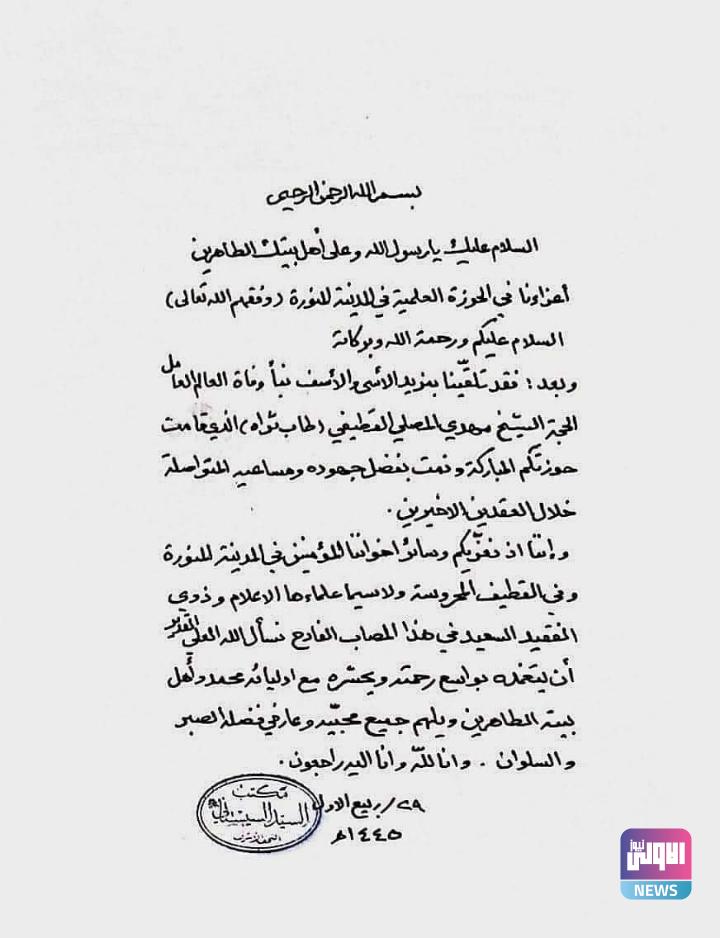 بسم الله الرحمن الرحيم
السلام عليك يا رسول الله وعلى أهل بيتك الطاهرين
أعزاءنا في الحوزة العلمية في المدينة المنورة (وفقهم الله تعالى)
السلام عليكم ورحمة الله وبركاته
وبعد: فقد تلقّينا بمزيد الأسى والأسف نبأ وفاة العالم العامل
الحجة الشيخ مهدي المصلي القطيفي (طاب ثراه) الذي قامت
حوزتكم المباركة ونمت بفضل جهوده ومساعيه المتواصلة
خلال العقدين الاخيرين.
وإننا اذ نعزّيكم وسائر اخواننا المؤمنين في المدينة المنورة
وفي القطيف المحروسة ولا سيما علماءها الاعلام وذوي
الفقيد السعيد في هذا المصاب الفادح نسأل الله العلي القدير
أن يتغمده بواسع رحمته ويحشره مع اوليائه محمد وأهل
بيته الطاهرين ويلهم جميع محبّيه وعارفي فضله الصبر
والسلوان. وانا للّه وانا اليه راجعون.
٢٩/ ربيع الاول
١٤٤٥هـ
مكتب
السيد السيستاني
النجف الاشرف
الاولى نيوز
NEWS